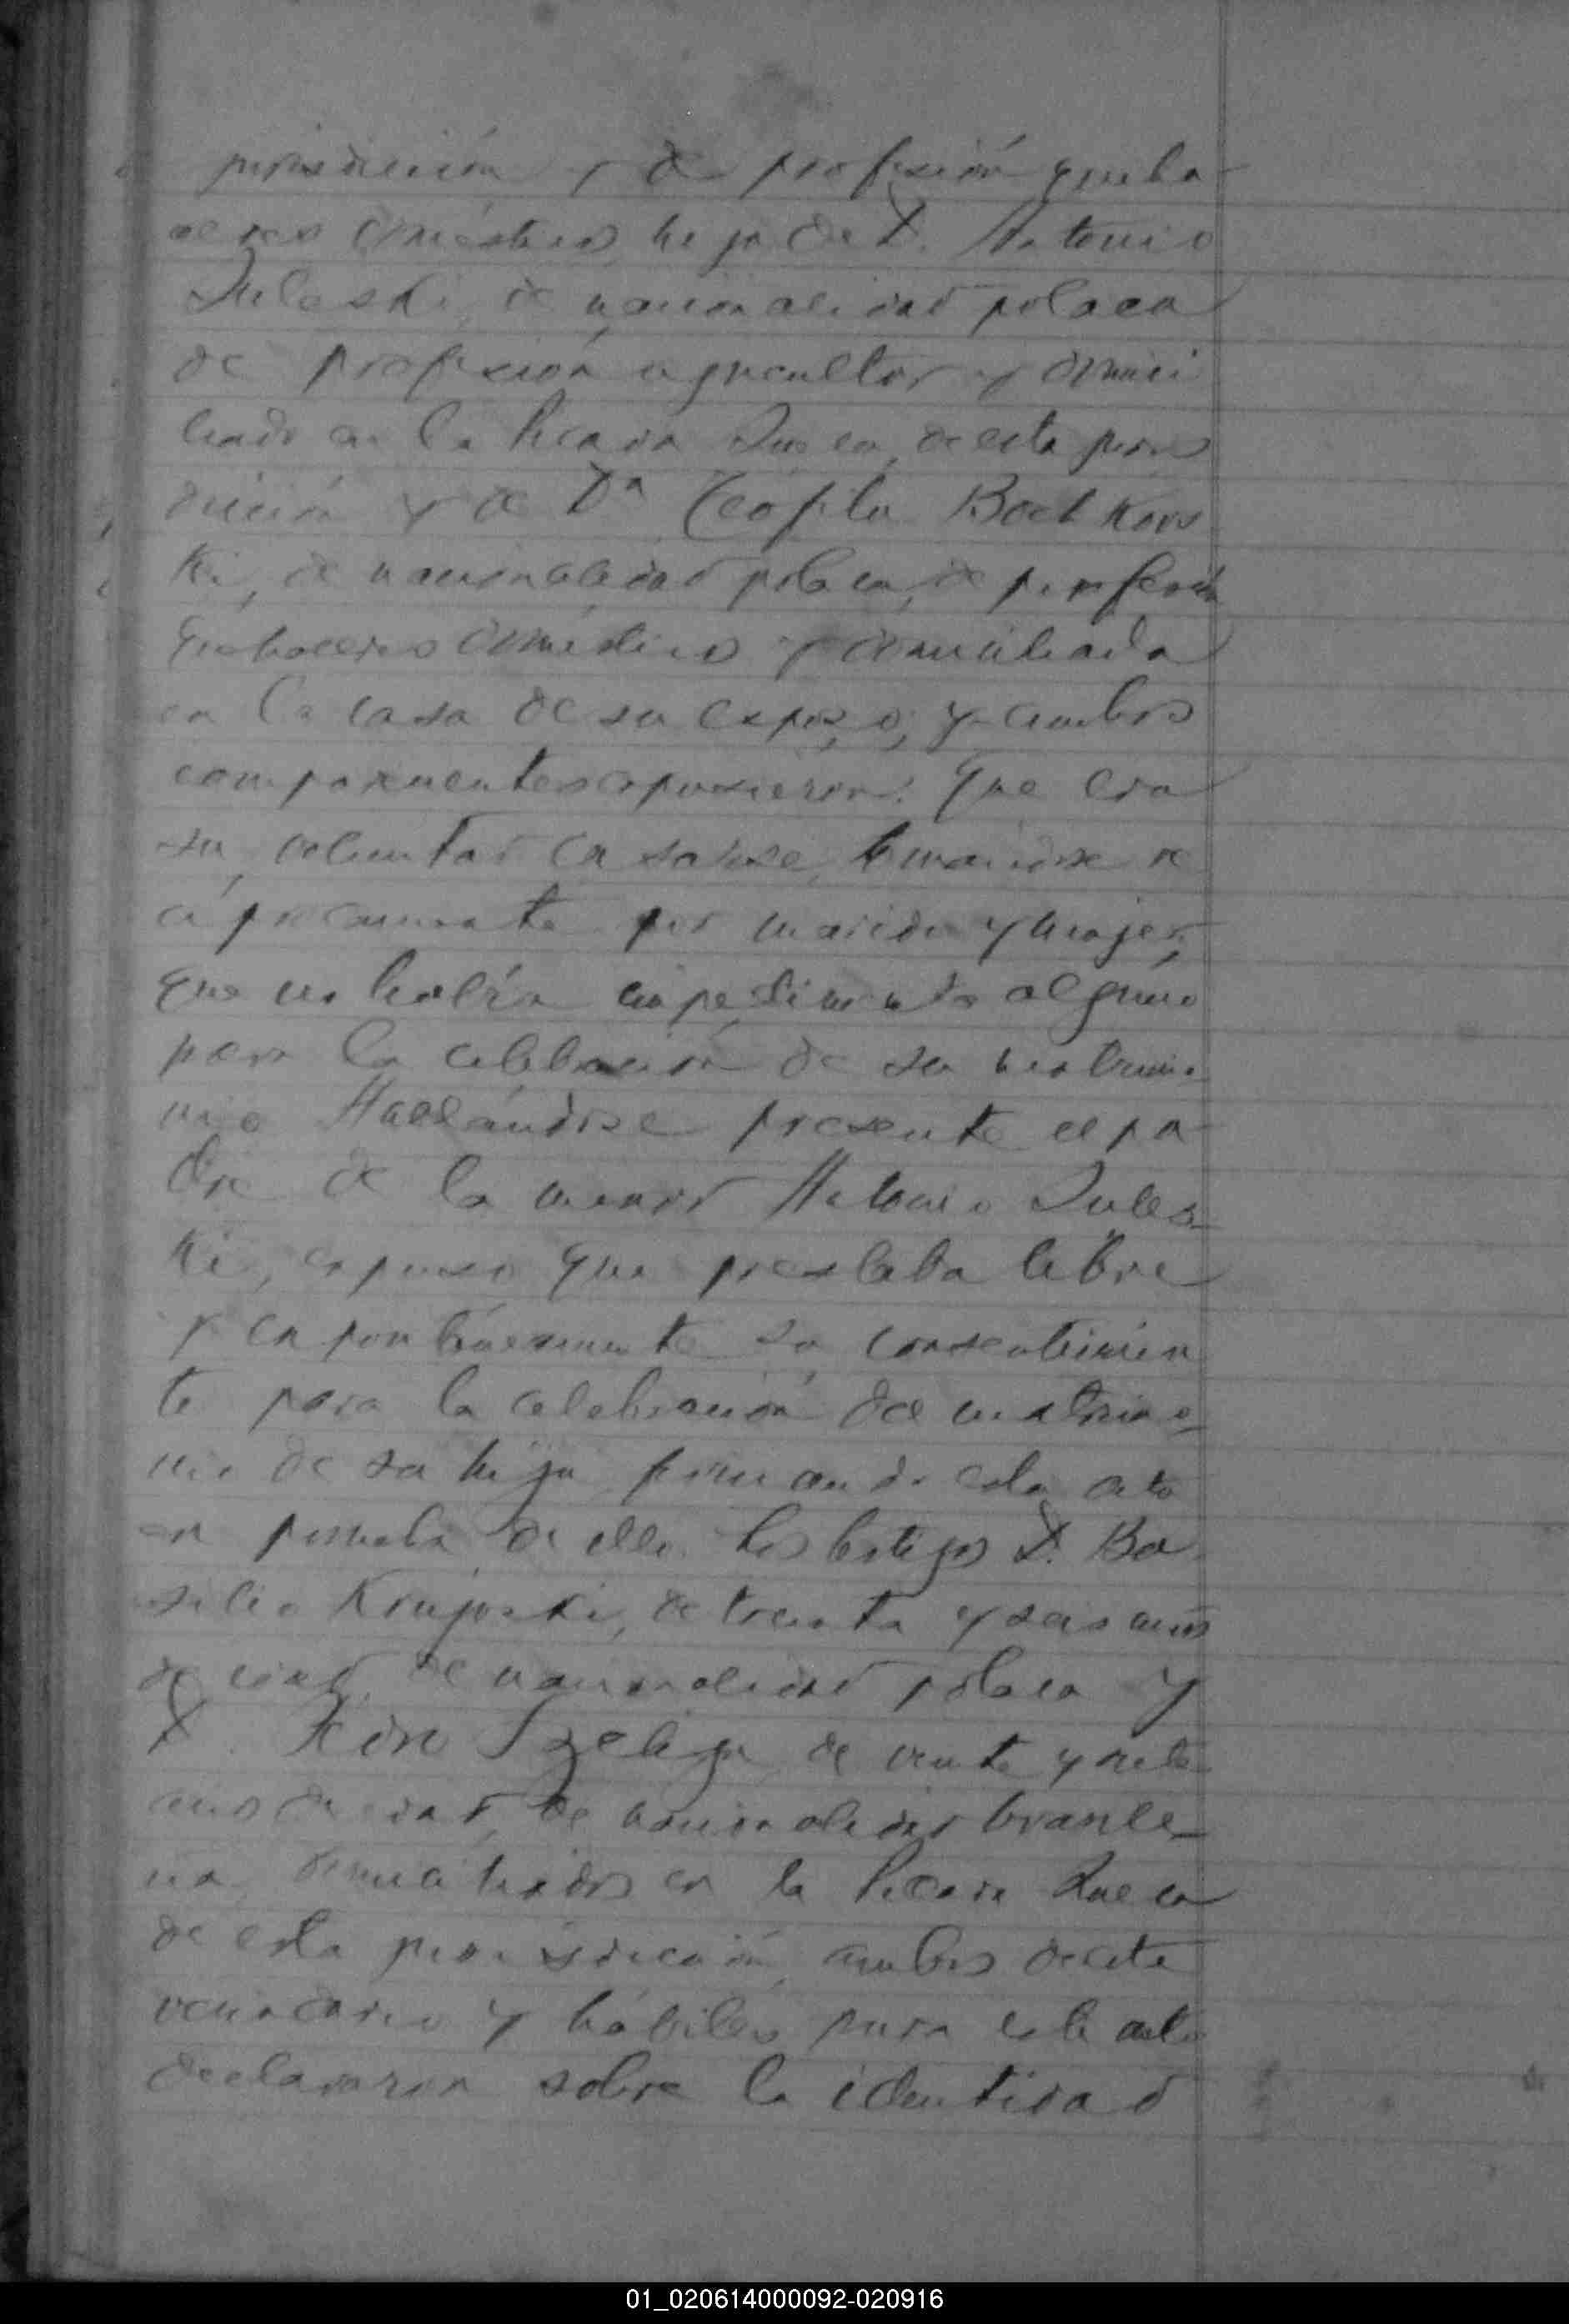 jurisdicción y de profesión queha
ceres domésticos, hija de D. Antonio
Zuleski, de nacionalidad polaca
de profesión agricultor y domici
liado en la Picada Sueca, de esta juris
dicción y de Dª Teófila Bochkovs
ki, de nacionalidad polaca, de profesión
quehaceres domésticos y domiciliada
en la casa de su esposo, y ambos
comparecientes expusieron: Que era
su voluntad casarse, tomandose re
ciprocamente por marido y mujer,
que no había impedimento alguno
para la celebración de su matrimo-
nio Hallándose presente el pa
dre de la menor Antonio Zules-
ki, expuso que prestaba libre
y expontáneamente su consentimien
to para la celebración del matrimo-
nio de su hija firmando esta acta
en prueba de ello. Los testigos D. Ba
silio Krujoski, de treinta y seis años
de edad, de nacionalidad polaca y
D. Szeliga, de veinte y siete
años de edad, de nacionalidad brasile-
na, domiciliados en la Picada Sueca
de esta jurisdicción, ambos de este
vecindario y hábiles para este acto
declararon sobre la identidad
01_020614000092-020916